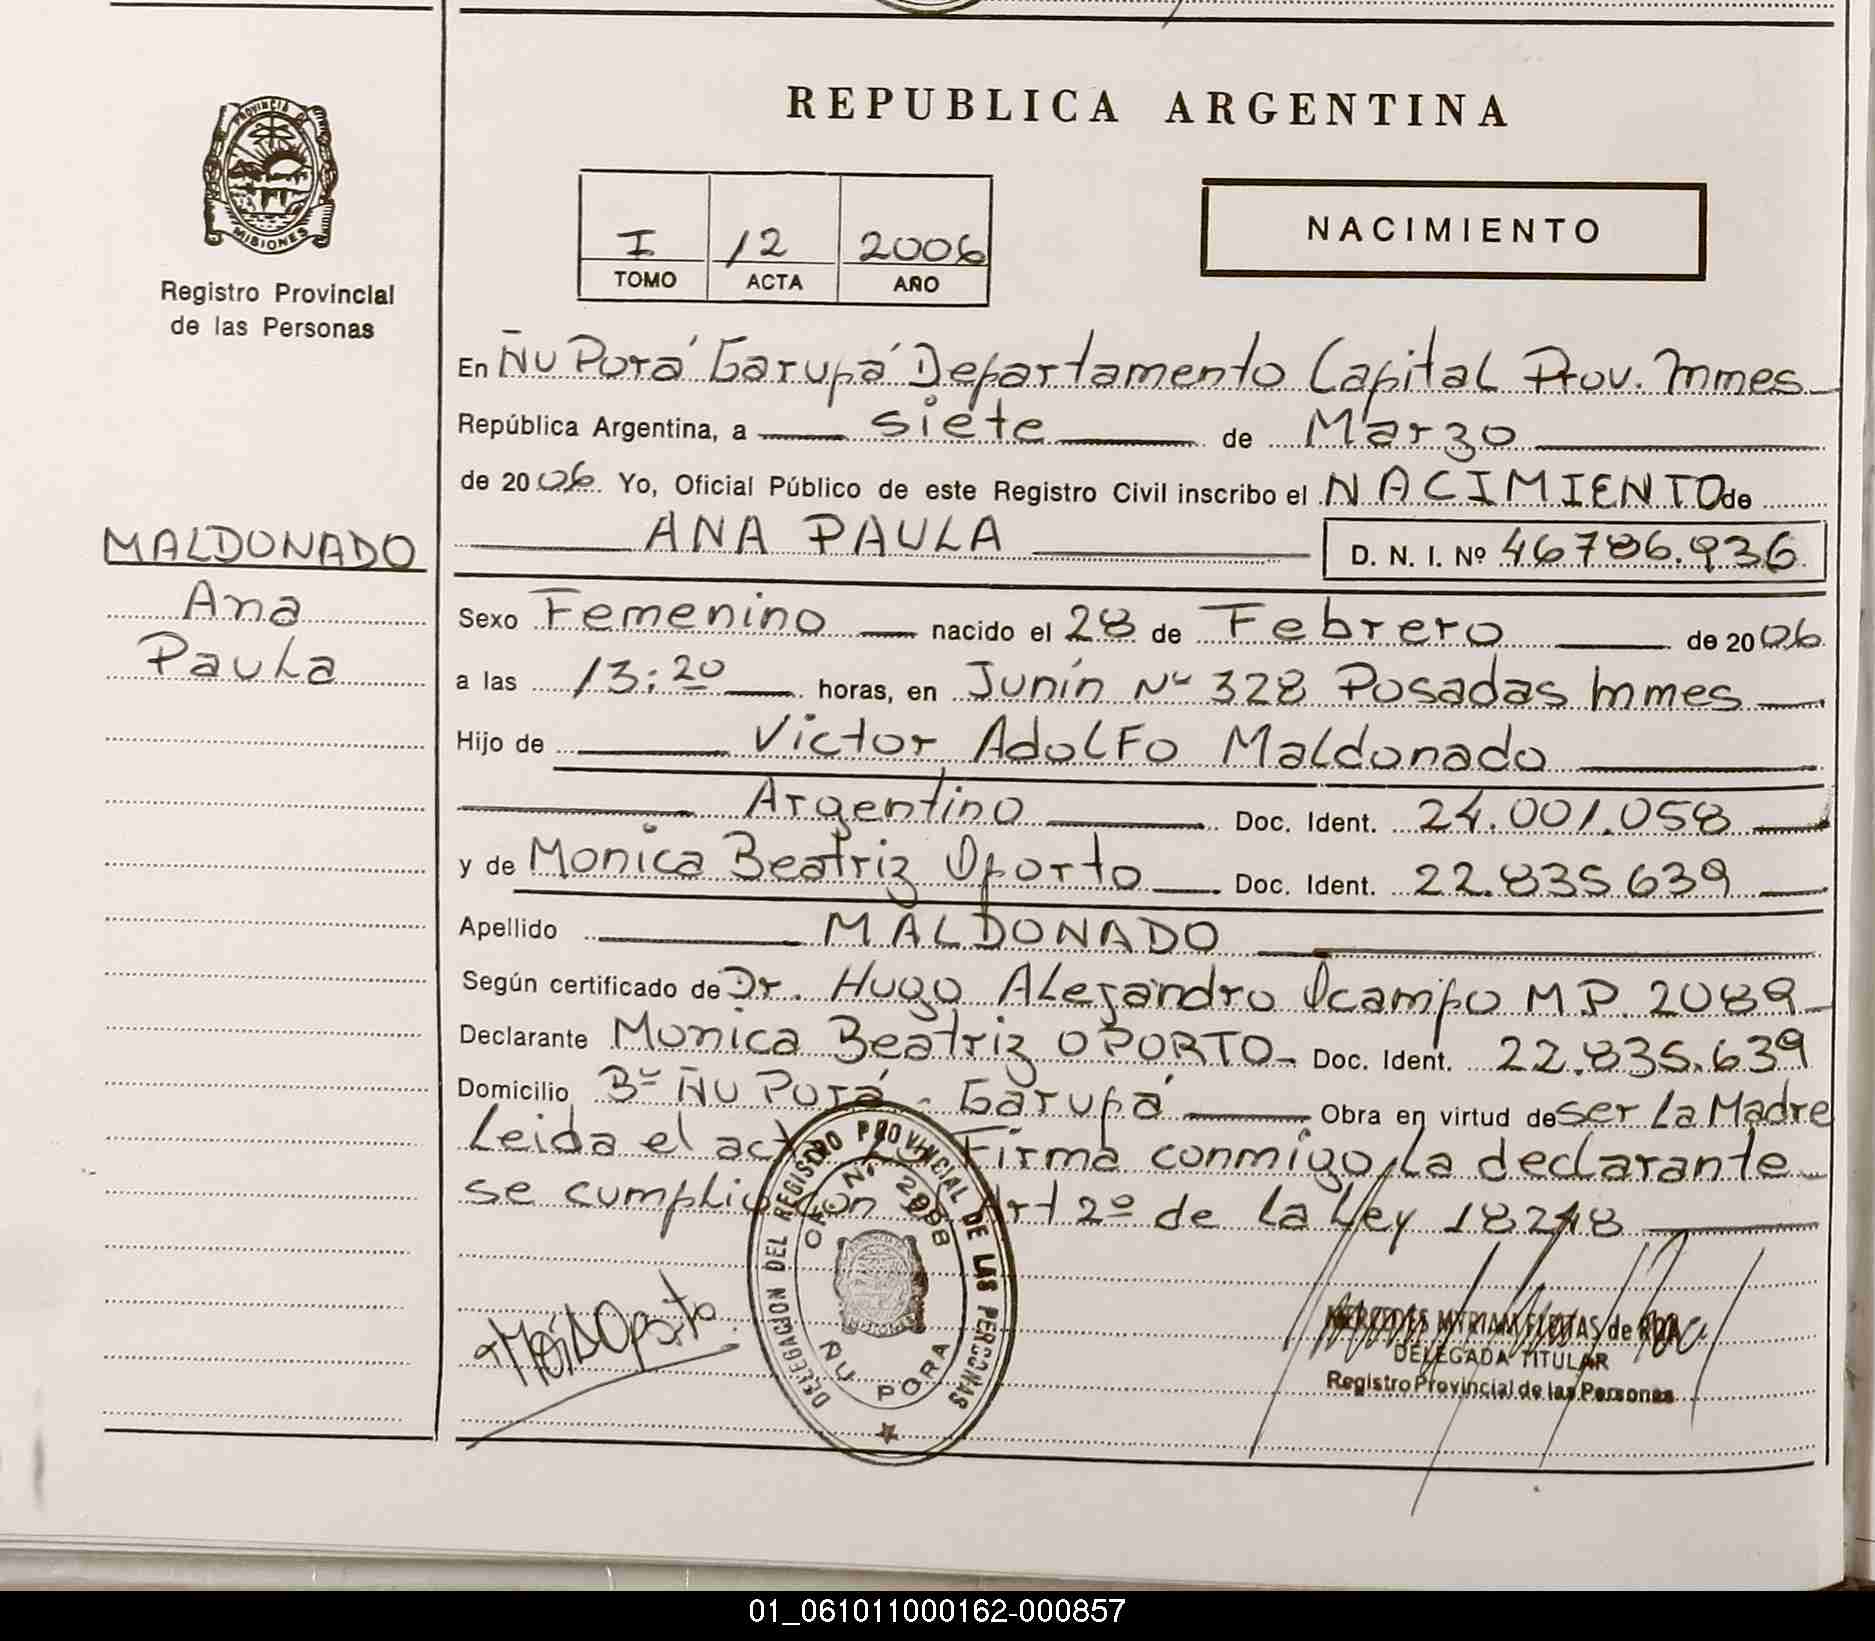 REPUBLICA ARGENTINA
PROVINCIA DE
MISIONES
Registro Provincial
de las Personas
I 12 2006
TOMO ACTA AÑO
NACIMIENTO
En Ñu Porá Garupá Departamento Capital Prov. Mmes
República Argentina, a siete de Marzo
de 2006 Yo, Oficial Público de este Registro Civil inscribo el NACIMIENTO de
ANA PAULA D. N. I. Nº 46786.936
MALDONADO
Ana
Paula
Sexo Femenino nacido el 28 de Febrero de 2006
a las 13:20 horas, en Junín Nº 328 Posadas Mmes
Hijo de Victor Adolfo Maldonado
Argentino Doc. Ident. 24.001.058
y de Monica Beatriz Oporto Doc. Ident. 22.835639
Apellido MALDONADO
Según certificado de Dr. Hugo Alejandro Ocampo M.P. 2089
Declarante Monica Beatriz OPORTO Doc. Ident. 22.835.639
Domicilio Bº Ñu Porá - Garupá Obra en virtud de Ser La Madre
Leida el acta Firma conmigo La declarante
se cumplio con Art 2º de La Ley 18248
DELEGACION DEL REGISTRO PROVINCIAL DE LAS PERSONAS
OF. Nº 2998
ÑU PORA
Oporto
MERCEDES MYRIAM FLEITAS de ROA
DELEGADA TITULAR
Registro Provincial de las Personas
01_061011000162-000857